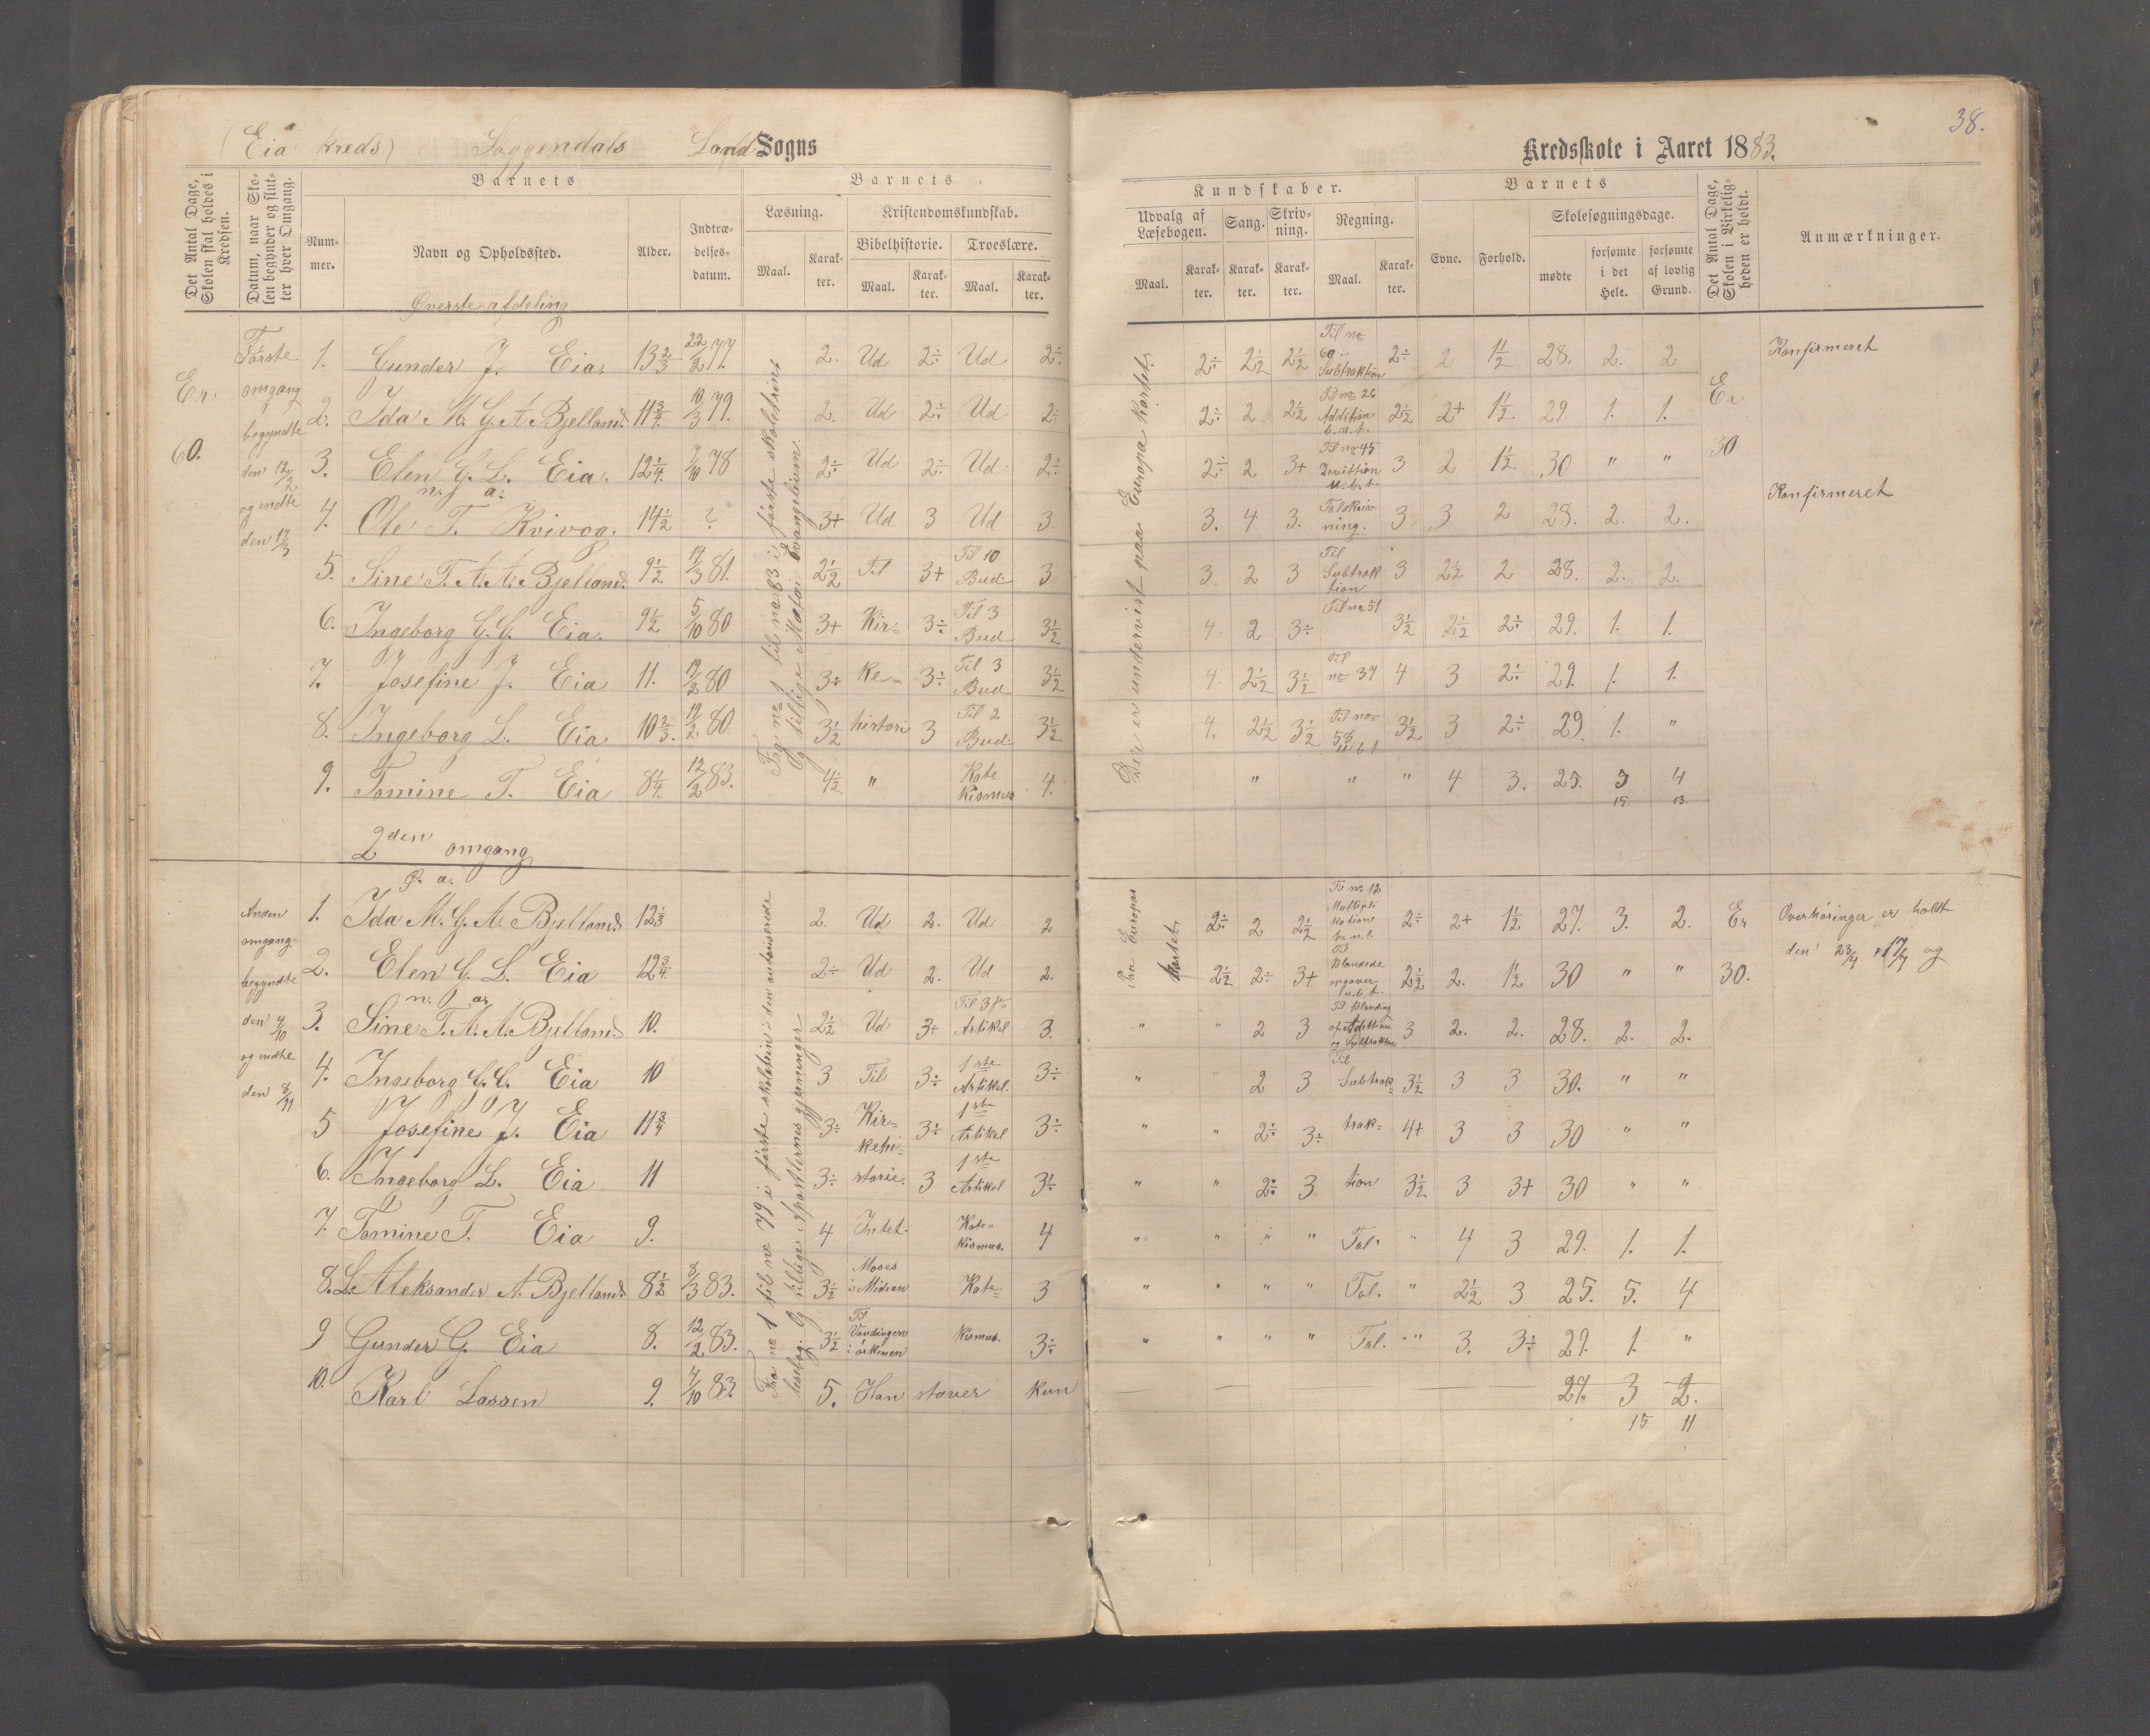 38.
(Eia kreds) Soggendals Land Sogns
Kredsskole i Aaret 1883.
Det Antal Dage, Skolen skal holdes i Kredsen.
Datum, naar Skolen begynder og slutter hver Omgang.
Barnets
Nummer.
Navn og Opholdssted.
Alder.
Indtrædelsesdatum.
Barnets
Læsning.
Maal.
Karakter.
Kristendomskundskab.
Bibelhistorie.
Maal.
Karakter.
Troeslære.
Maal.
Karakter.
Kundskaber.
Udvalg af Læsebogen.
Maal.
Karakter.
Sang.
Karakter.
Skrivning.
Karakter.
Regning.
Maal.
Karakter.
Barnets
Evne.
Forhold.
Skolesøgningsdage.
mødte
forsømte i det Hele.
forsømte af lovlig Grund.
Det Antal Dage, Skolen i Virkeligheden er holdt.
Anmærkninger.
Øverste afdeling
Er 60.
Første omgang begyndte den 12/2 og endte den 17/3
Fra no 1 til no 83 i første skoletrint
Og tillige Matæi Evangelium.
Der er undervist paa Europa Kartet.
1. Gunder J. Eia. 13 2/3 22/2 77. 2. Ud 2÷ Ud 2÷ 2÷ 2 1/2 2 1/2 Til no 60 i Subtraktion 2÷ 2 1 1/2 28. 2. 2 Konfirmeret
2. Ida M. G. A. Bjelland. 11 3/4. 10/3 79. 2. Ud 2÷ Ud 2÷ 2÷ 2 2 1/2 Til no 26 Addition b.n.t. 2 1/2 2+ 1 1/2 29. 1. 1. Er
3. Elen G. L. Eia. 12 1/4. 7/10 78 2÷ Ud 2÷ Ud 2÷ 2÷ 2 3+ Til no 45 u.b.t. 3 2 1 1/2 30 " " 30
n. a.
4. Ole T. Kvivog. 14 1/2 ? 3+ Ud 3 Ud 3 3. 4 3. ning. 3 3 2 28. 2. 2. Konfirmeret
5. Sine T. A. A. Bjelland. 9 1/2 14/3 81. 2 1/2 Til 3+ Til 10 Bud 3 3. 2 3 Til Subtraktion 3 2 1/2 2 28. 2. 2.
6. Ingeborg G. G. Eia. 9 1/2 5/10 80 3+ Kir= 3÷ Til 3 Bud 3 1/2 4. 2 3÷ Til no 51 3 1/2 2 1/2 2÷ 29. 1. 1.
7. Josefine J. Eia 11. 19/2 80 3÷ ke= 3÷ Til 3 Bud 3 1/2 4. 2 1/2 3 1/2 Til no 37 4 3 2÷ 29. 1. 1.
8. Ingeborg L. Eia 10 2/3. 19/2 80 3 1/2 histori 3 Til 2 Bud 3 1/2 4. 2 1/2 3 1/2 Til no 58 u.b.t 3 1/2 3 2÷ 29. 1. "
9. Tomine T. Eia 8 1/4. 12/2 83. 4 1/2 " Kate kismus 4. " " " 4 3. 25. 5 4
15. 13
2den omgang
Anden omgang begyndte den 4/10 og endte den 8/11
Fra no 1 til no 79 i første skoletrin i den autoriserede
læsebog. Og tillige Apostlernes gjerninger
Paa Europas Kartet.
Ø. a.
1. Ida M. G. A. Bjelland 12 1/3 2. Ud 2. Ud 2 2÷ 2 2 1/2 Til no 12 Multiplikation b.n.t. 2÷ 2+ 1 1/2 27. 3. 2. Er Overhøringer er holdt
2. Elen G. L. Eia 12 3/4. 2÷ Ud 2. Ud 2. 2 1/2 2÷ 3+ Til Blandede opgaver u.b.t. 2 1/2 2. 1 1/2 30 " " 30. den 23/4 17/9 og
n. a.
3. Sine T. A. A. Bjelland 10. 2 1/2 Ud 3+ Til 3die Artikel 3. " " 2 3 Til Blanding af Addition og Subtraktion 3 2. 2. 28. 2. 2.
4. Ingeborg G. G. Eia 10 3 Til 3÷ 1ste Artikel. 3÷ " " 2 3 Til Subtrak= 3 1/2 3 3 30. " "
5 Josefine J. Eia 11 3/4 3÷ Kir= kehi= 3÷ 1ste Artikel 3÷ " " 2÷ 3÷ trak= 4+ 3 3 30 " "
6. Ingeborg L. Eia 11 3÷ storie. 3 1ste Artikel 3÷ " " 2÷ 3 tion 3 1/2 3 3+ 30 " "
7. Tomine T. Eia 9. 4 Intet. Kate= kismus. 4 " " " " Tal. " 4 3 29. 1. 1.
8. L. Aleksander A. Bjelland. 8 1/2 8/3 83. 3 1/2 Moses i Midian Kate= 3 " " " " Tal. " 2 1/2 3 25. 5. 4
9 Gunder G. Eia 8. 12/2 83. 3 1/2 Til Vandingen i ørkenen kismus. 3÷ " " " " Tal. " 3. 3÷ 29. 1. "
10. Karl Lassen 9. 4/10 83. 5. Han staver kun 27. 3 2.
15 11